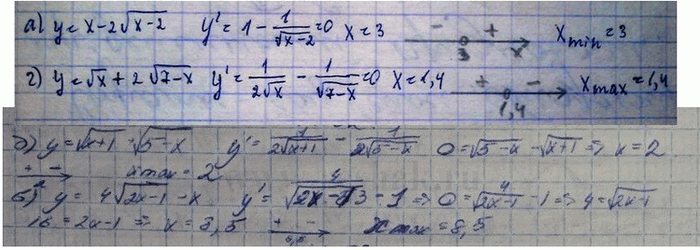 а) y = x - 2√x-2 y' = 1 - 1/√x-2 = 0 x = 3 - + 3 x xmin = 3
г) y = √x + 2√7-x y' = 1/2√x - 1/√7-x = 0 x = 1,4 + - 1,4 xmax = 1,4
y = √x+1 √5-x y' = 1/2√x+1 - 1/2√5-x 0 = √5-x - √x+1 => x = 2
+ - 2 xmax = 2
б) y = 4√2x-1 - x y' = 4/√2x-1 - 1 => 0 = 4/√2x-1 - 1 => 4 = √2x-1
16 = 2x-1 => x = 8,5 + - 8,5 xmax = 8,5